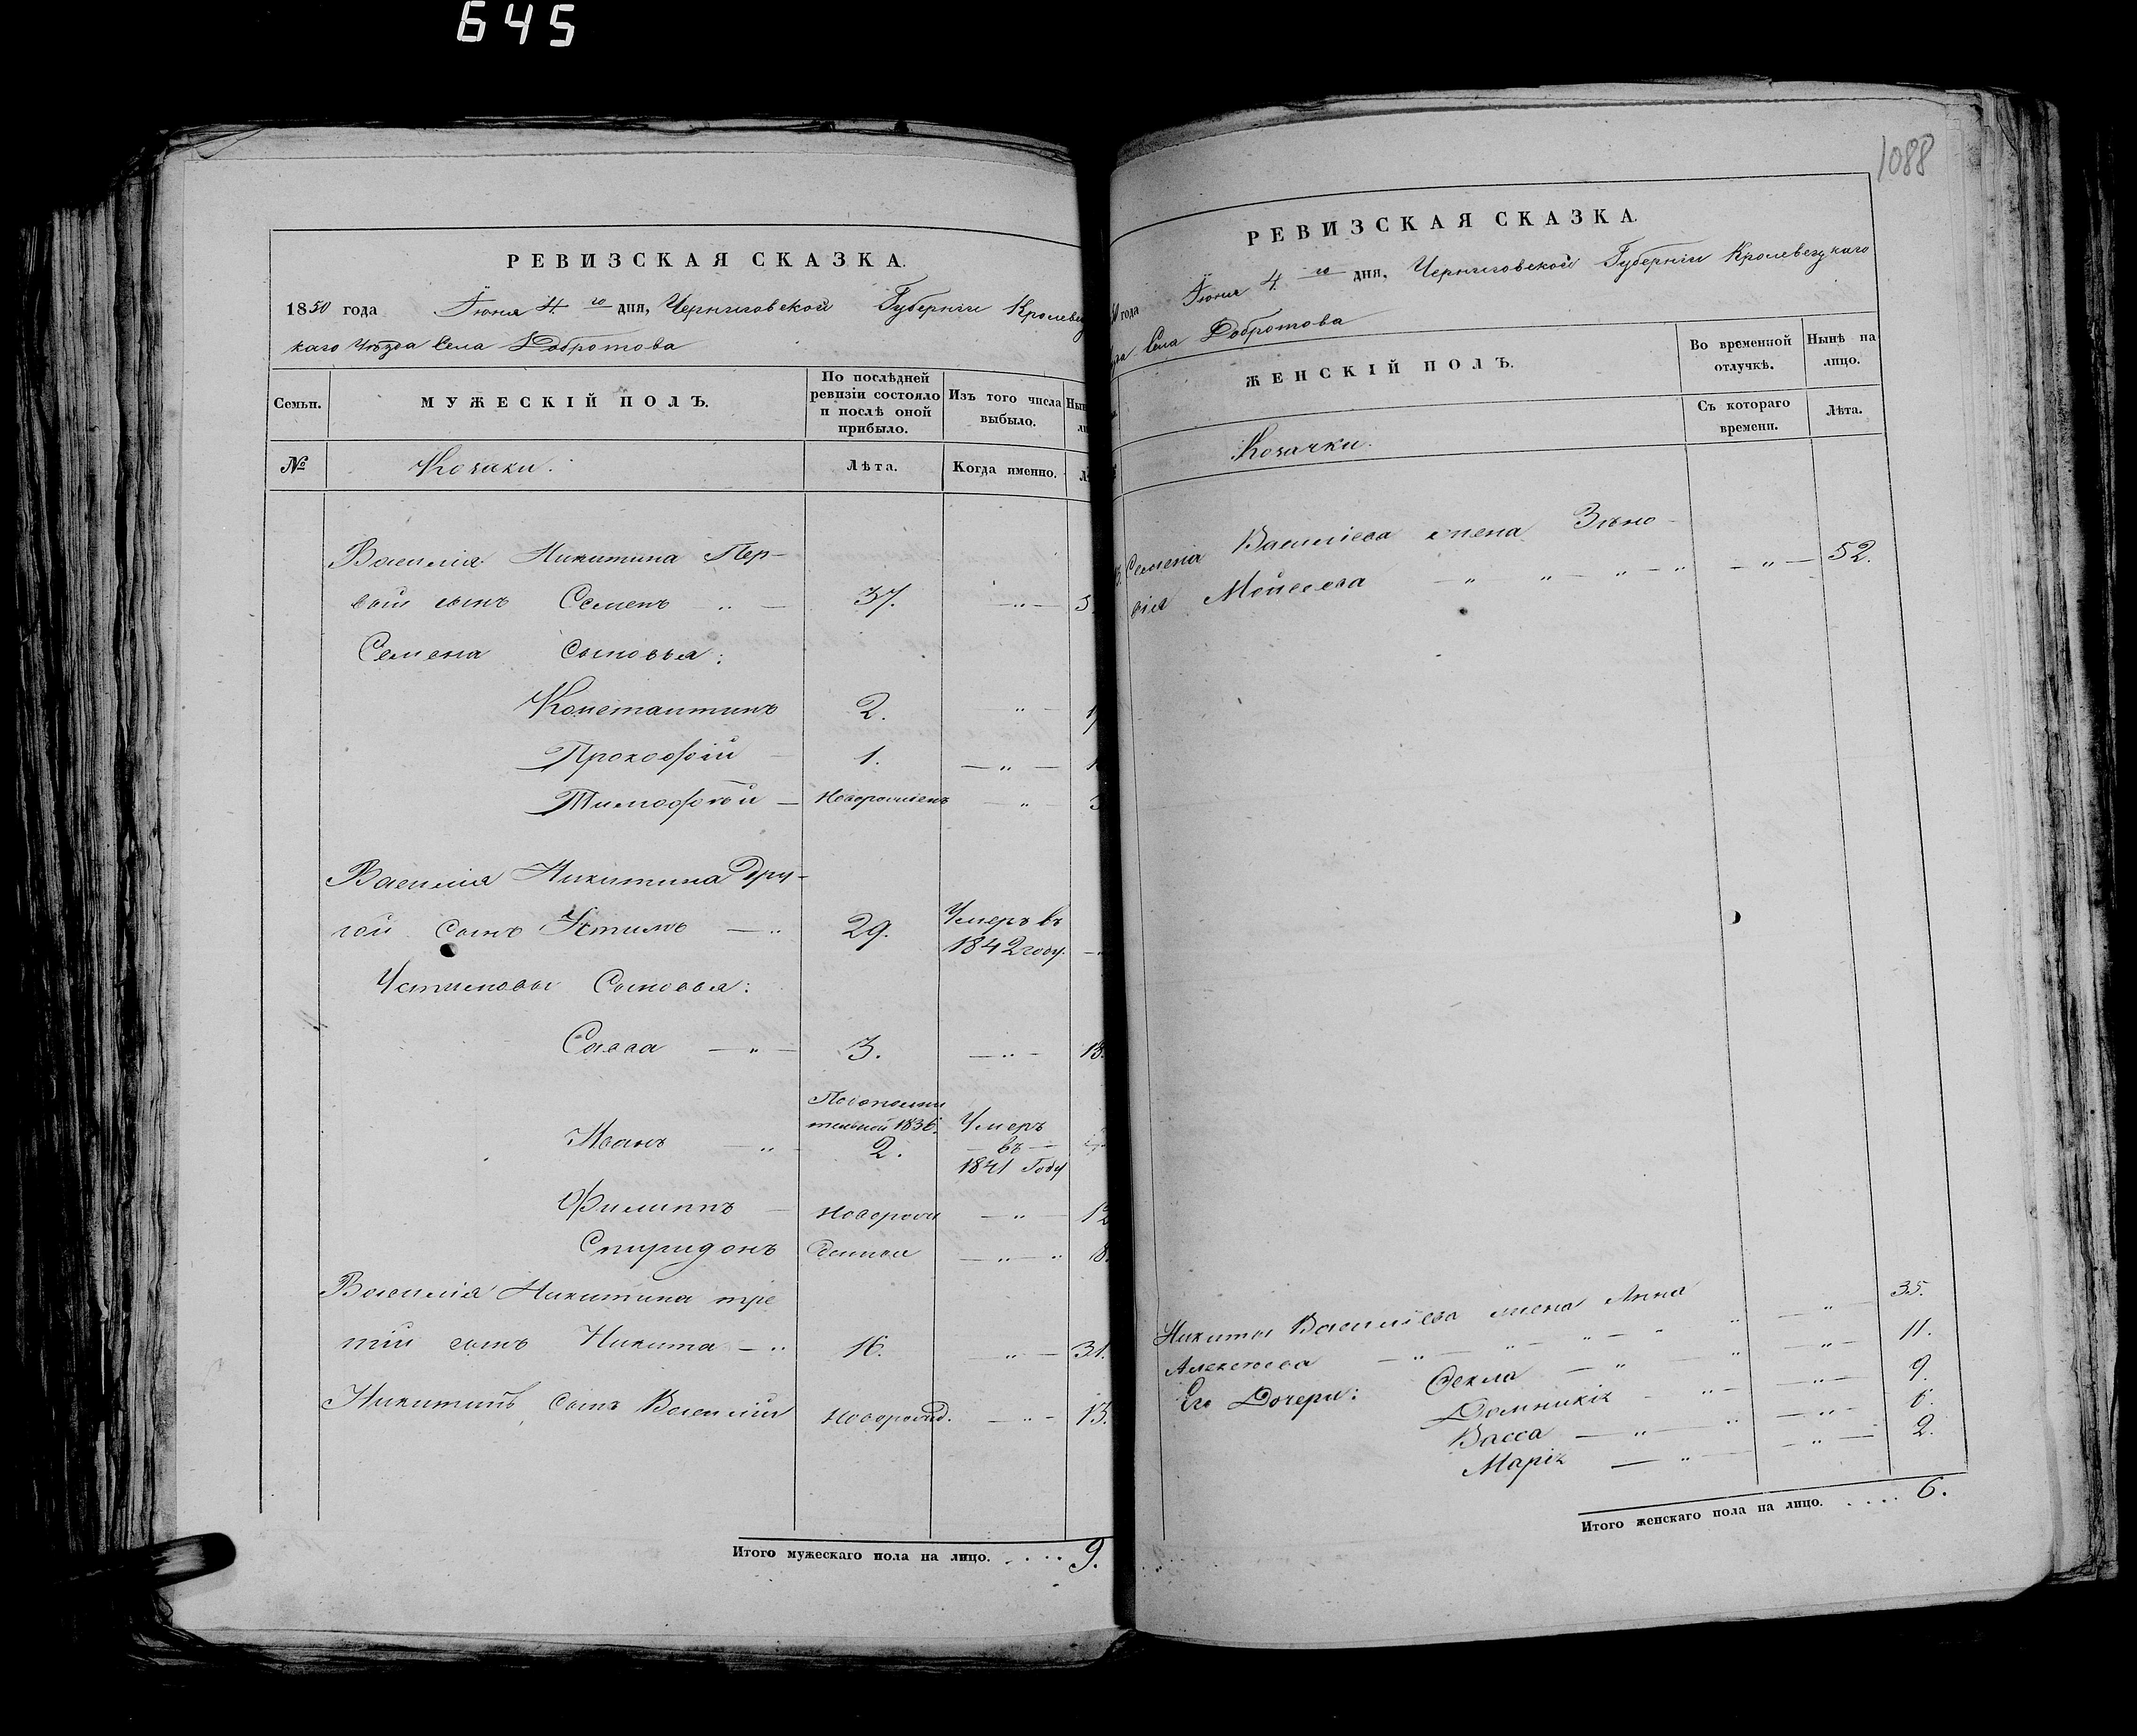 645
РЕВИЗСКАЯ СКАЗКА.
1850 года Іюня 4го дня, Черниговской Губерніи Кролевец
каго Уѣзда Села Добротова
Семьи.
МУЖЕСКІЙ ПОЛЪ.
По послѣдней
ревизіи состояло
и послѣ оной
прибыло.
Изъ того числа
выбыло.
№
Козаки.
Лѣта.
Когда именно.
Василія Никитина Пер-
вый сынъ Семенъ 37.
Семена Сыновья:
Константинъ 2.
Прокофій 1.
Тимофѣй Новорожденъ
Василія Никитина Дру-
гой сынъ Устимъ 29. Умеръ въ
1842 году.
Устимовы Сыновья:
Савва 3. 18.
Пополни
тельной 1836. Умеръ
Иванъ 2. въ
1841 Году
Филиппъ Новорож 12
Спиридонъ денные 8.
Василія Никитина тре
тій сынъ Никита 16. 31.
Никитинъ сынъ Василій Новорожд. 13.
Итого мужескаго пола на лицо. .... 9.
1088
РЕВИЗСКАЯ СКАЗКА.
года Іюня 4го дня, Черниговской Губерніи Кролевецкаго
Села Добротова
ЖЕНСКІЙ ПОЛЪ.
Во временной
отлучкѣ.
Нынѣ на
лицо.
Съ котораго
времени.
Лѣта.
Козачки.
Семена Василіева жена Зѣно-
вія Мойсеева 52.
Никиты Василіева жена Анна
Алексѣева 35.
Его Дочери: Фекла 11.
Домникія 9.
Васса 6.
Марія 2.
Итого женскаго пола на лицо. .... 6.